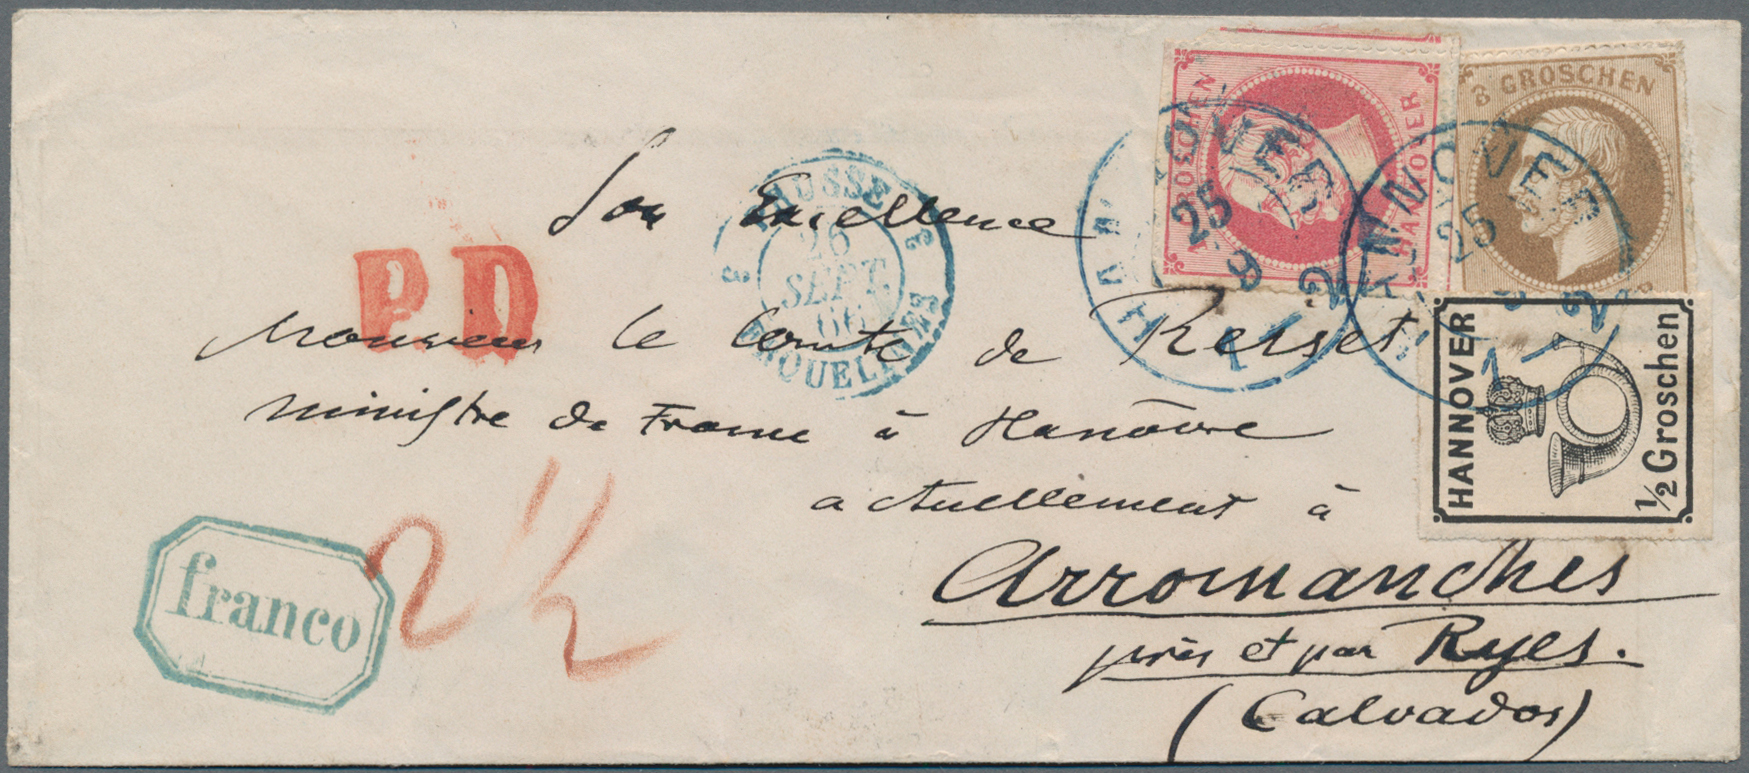 GROSCHEN
HANNOVER
3 GROSCHEN
HANNOVER
25
9
1-2
HANNOVER
25
9
1-2
HANNOVER
1/2 Groschen
PRUSSE
3
3
26
SEPT.
66
ERQUELINES
P.D.
Son Excellence
Monsieur le Comte de Reiset
ministre de France à Hanovre
actuellement à
Arromanches
près et par Ryes.
(Calvados)
2 1/2
franco